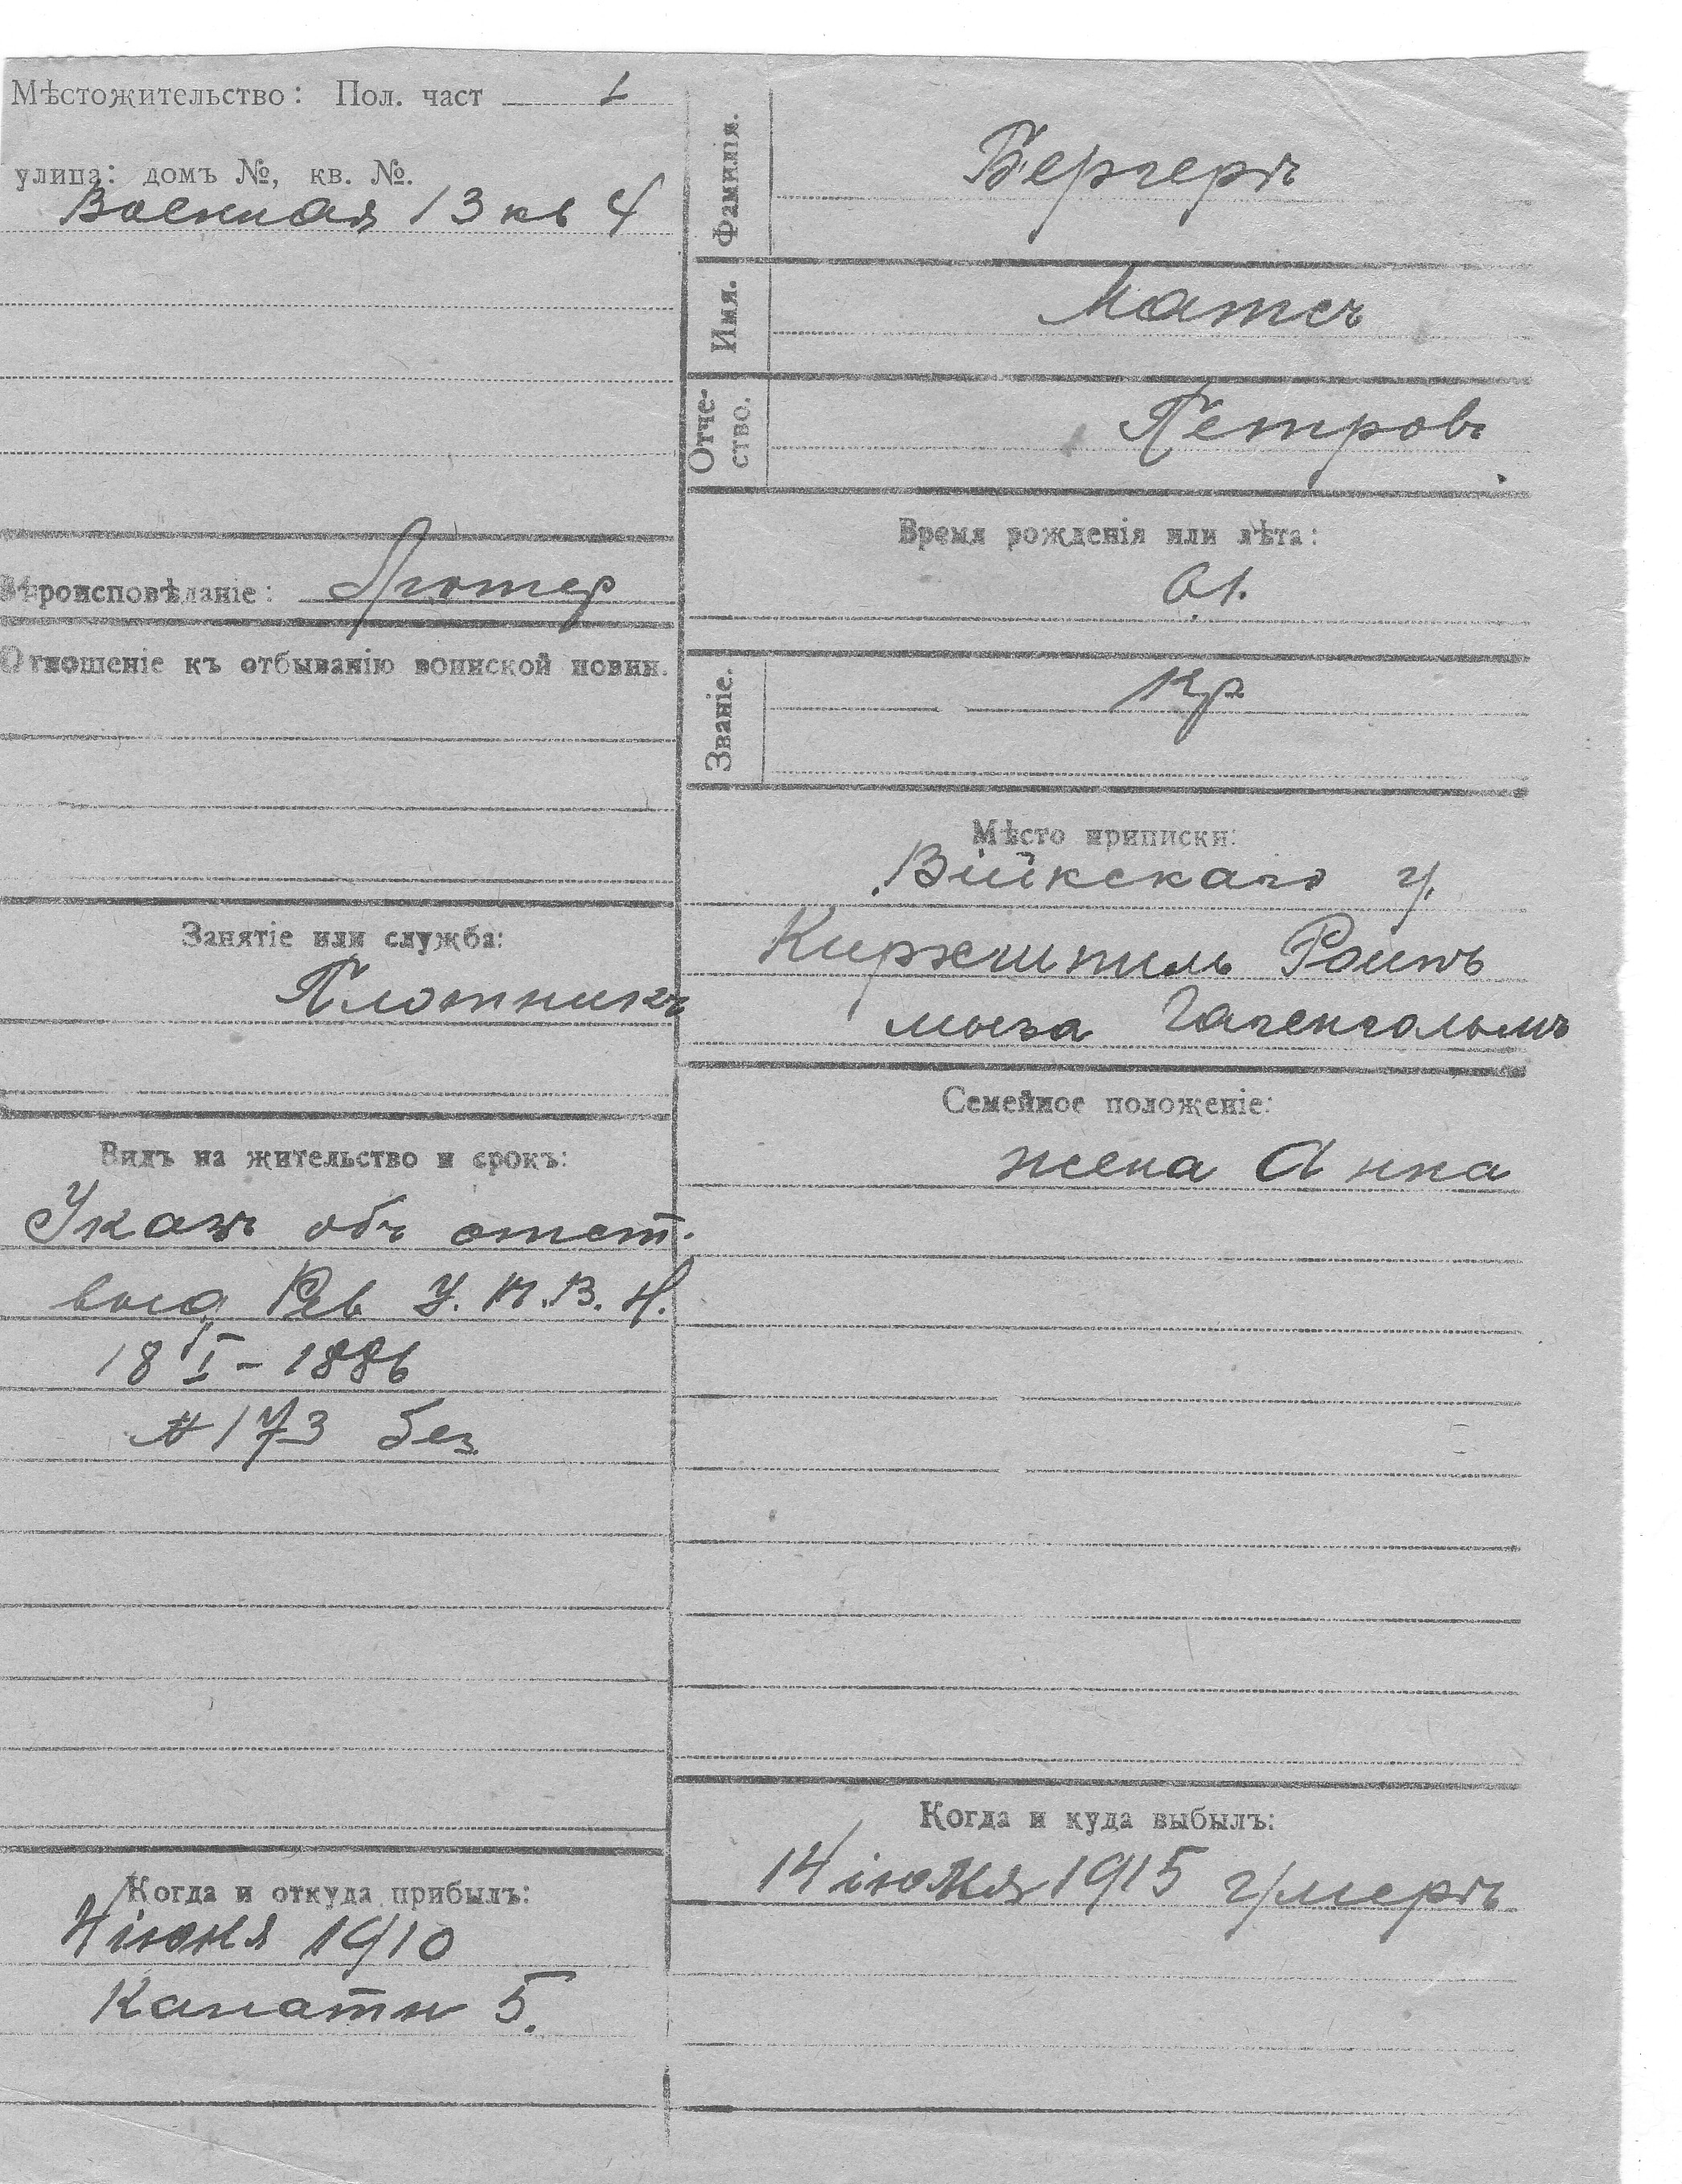 Мѣстожительство: Пол. част 1
улица: домъ №, кв. №.
Военная 13 кв 4
Вѣроисповѣданіе: Лютер
Отношеніе къ отбыванію воинской повин.
Занятіе или служба:
Плотникъ
Видъ на жительство и срокъ:
Указъ объ отст.
выд Рев У. П. В. Н.
18 I - 1886
№ 173 без
Когда и откуда прибылъ:
4 іюня 1910
Канатн 5.
Фамилія. Бергертъ
Имя. Матсъ
Отче-
ство. Петровъ
Время рожденія или лѣта:
61.
Званіе. кр
Мѣсто приписки:
Війкскаго у.
мыза Гагенгольмъ
Семейное положеніе:
жена Анна
Когда и куда выбылъ:
14 іюня 1915 умеръ